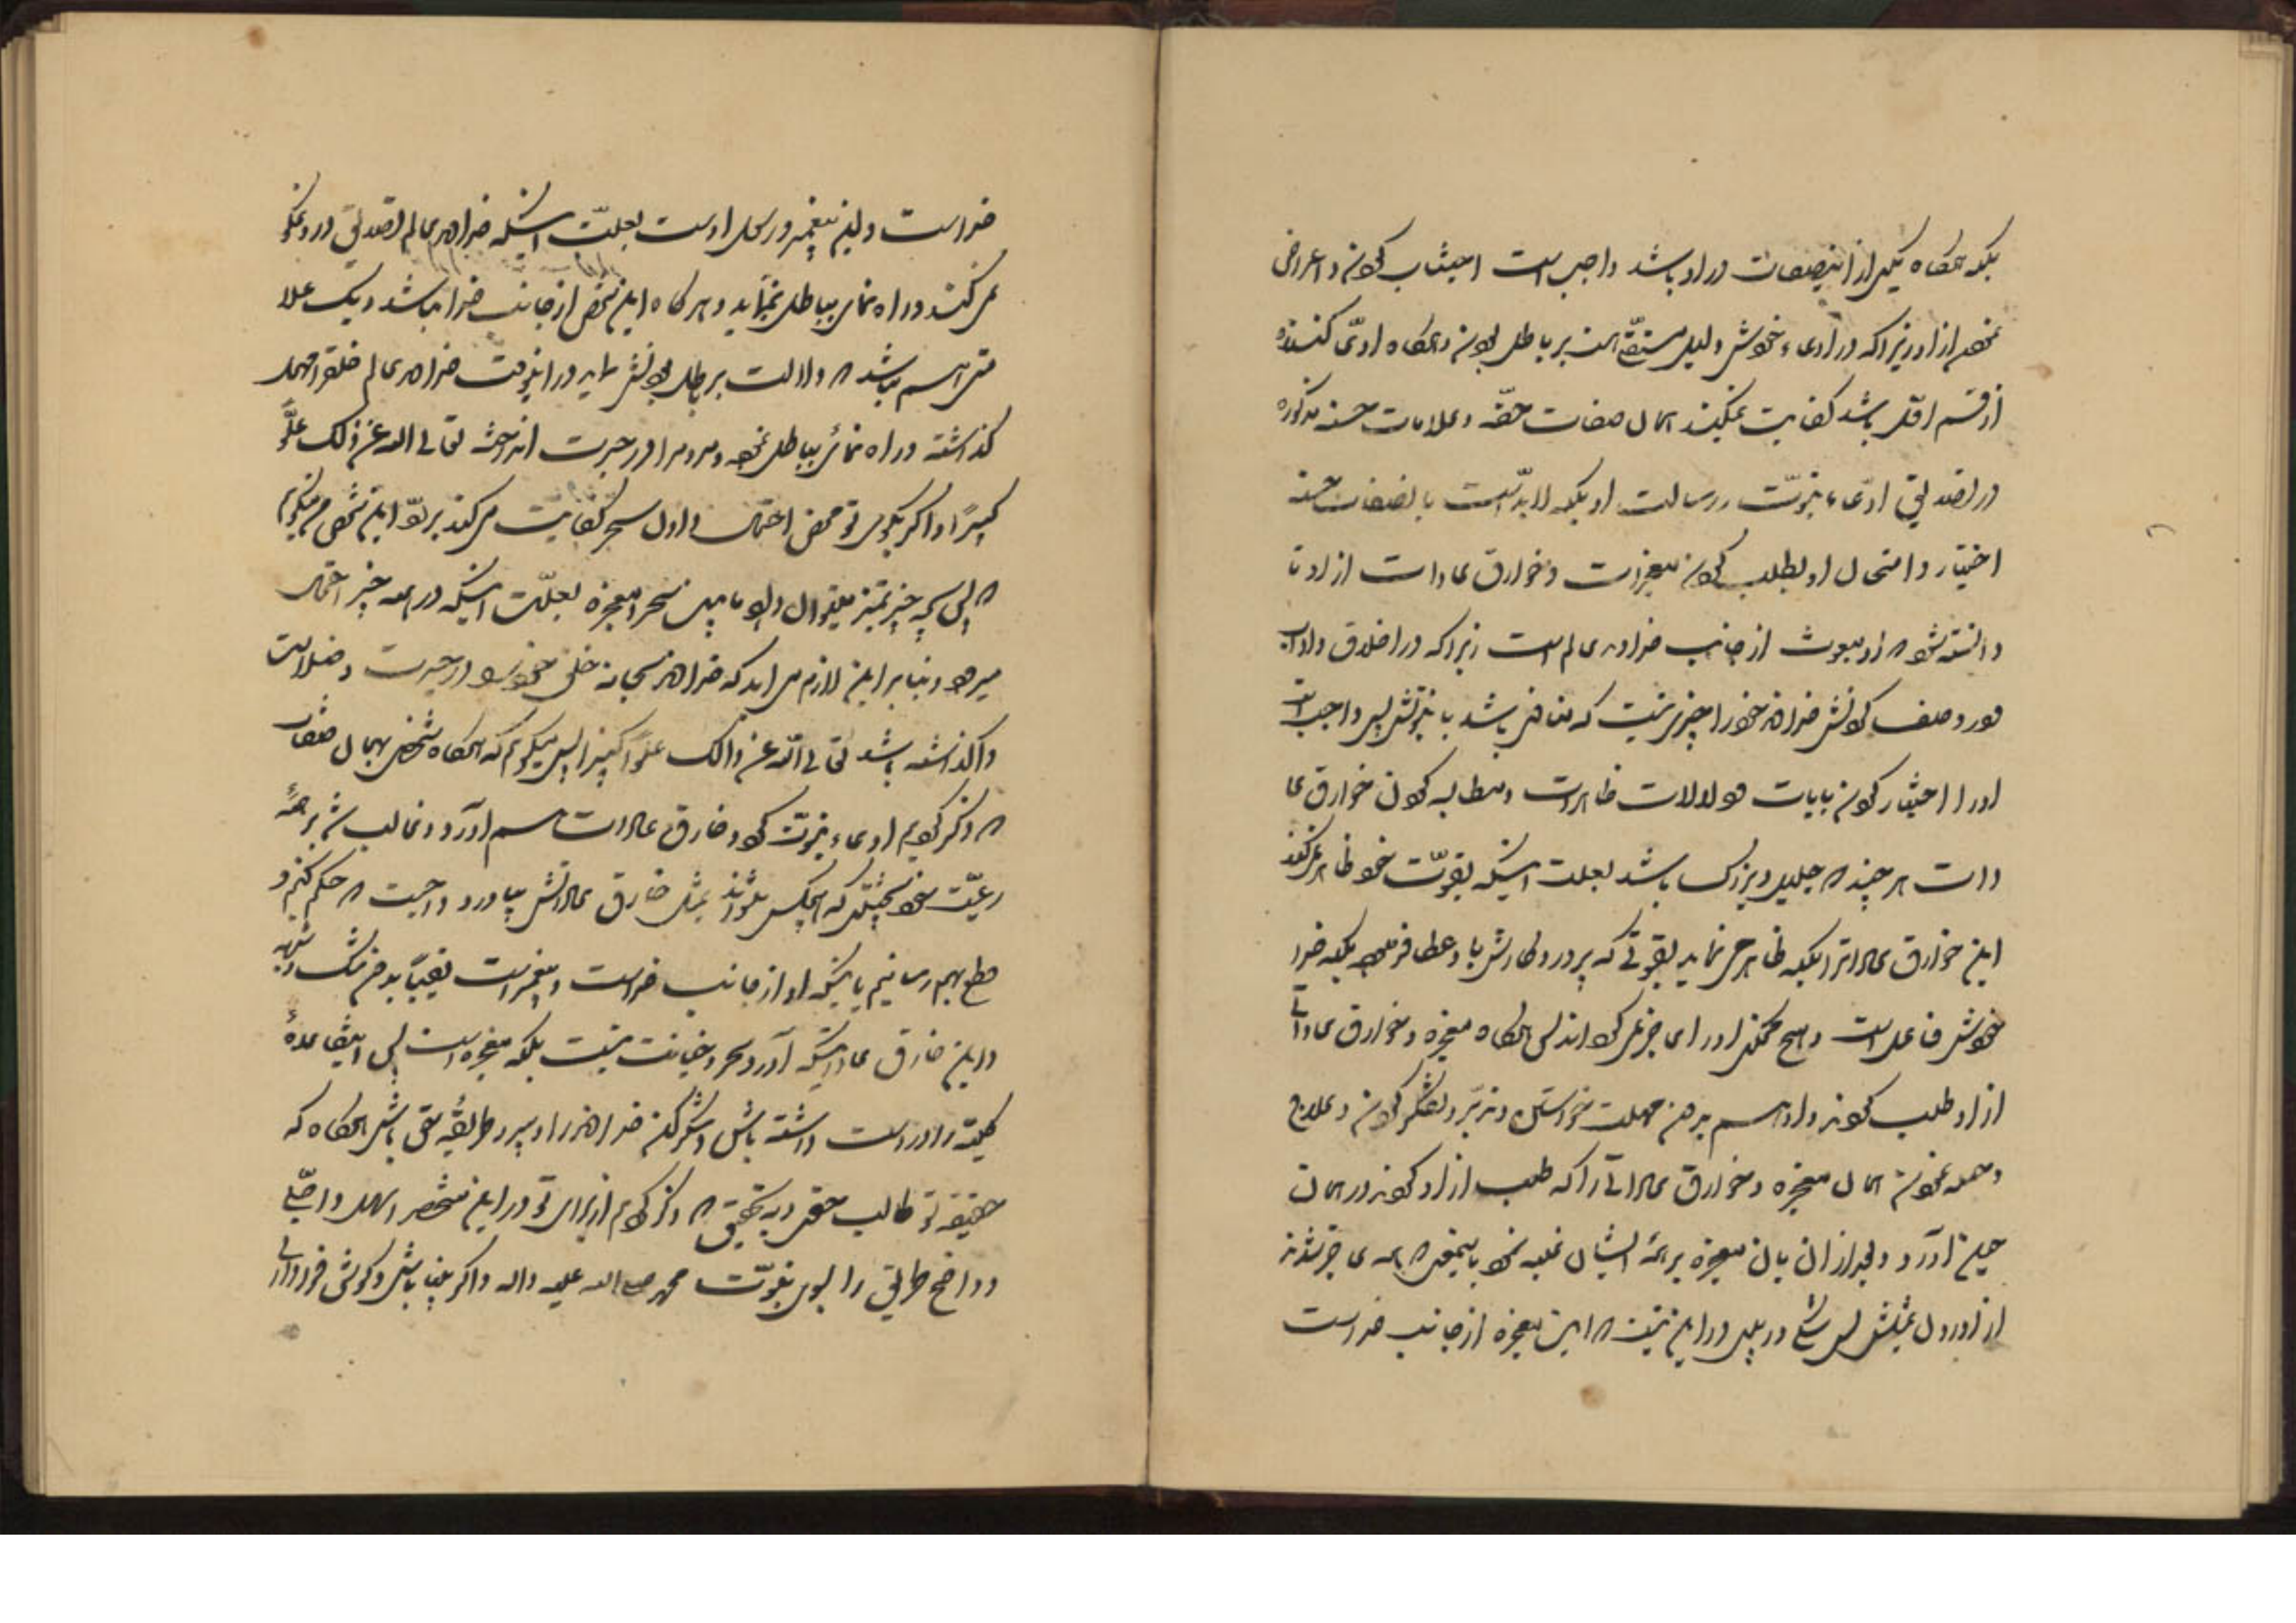 بلکه هرگاه یکی از اینصفات در او باشد واجب است اجتناب کردن و اعراض
نمودن از او زیرا که در ادعاء خودش دلیل است بر باطل بودن و هرگاه ادعا کننده
از قسم اول باشد کفایت نمیکند همان صفات حقه و علامات حسنه مذکوره
در تصدیق ادعاء نبوت و رسالت او بلکه لابد است با صفات حسنه
اختبار و امتحان او بطلب کردن معجزات و خوارق عادات از او تا
دانسته شود که او مبعوث از جانب خداوند عالم است زیرا که در اخلاق و آداب
و در وصف کردنش خداوند خود را چیزی نیست که منافی باشد با نبوتش پس واجب است
او را اختبار کردن بآیات و دلالات ظاهرات و مطالبه کردن خوارق عا
دات هر چند که جلیل و بزرگ باشد بعلت اینکه بقوت خود ظاهر نمیکند
این خوارق عادات را بلکه ظاهر می نماید بقوتی که پروردگارش باو عطا فرموده بلکه خدا
خودش فاعل است و هیچ ممکن او را عاجز نمی کرداند پس هرگاه معجزه و خوارق عاداتی
از او طلب کردند و او هم بدون مهلت خواستن و تدبر و تفکر کردن و علاج
نمودن همان معجزه و خوارق عاداتی را که طلب از او کردند در همان
حین آورد و بعد از آن بآن معجزه بر همه ایشان غلبه نمود باینمعنی که همه عاجز شدند
از آوردن بمثلش پس شکی و ریبی در این نیست که این معجزه از جانب خداست
خداست و این پیغمبر و رسول اوست بعلت اینکه خداوند عالم تصدیق دروغگو
نمی کند و راه نمائی بباطل نمینماید و هرگاه این شخص از جانب خدا نباشد و یک علا
متی هم نباشد که دلالت بر باطل بودنش نماید در اینوقت خداوند عالم خلق را مهمل
گذاشته و راه نمائی بباطل نموده و مردم را در حیرت انداخته تعالی الله عن ذلک علوّا
کبیرًا و اگر بگوئی تو محض احتمال دادن سحر کفایت می کند بر رد این شخص من میگویم
که پس بچه چیز تمیز میتوان داد مابین سحر و معجزه بعلت اینکه در همه چیز احتمال
میرود و بنا بر این لازم می اید که خداوند سبحانه خلق خود را در حیرت و ضلالت
واگذاشته باشد تعالی الله عن ذالک علوّا کبیرا پس میگویم که هرگاه شخصی بهمان صفات
که ذکر کردیم ادعاء نبوت کرد و خارق عادات هم آورد و غالب شد بر همهٔ
رعیت خود بحیثیتی که هیچکس نتواند بمثل خارق عاداتش بیاورد واجبست که حکم کنیم و
قطع بهم رسانیم باینکه او از جانب خداست و پیغمبر است یقینًا بدون شک و شبهه
و این خارق عادات که آورد سحر و خیانت نیست بلکه معجزه است پس این قاعدهٔ
کلیه را در دست داشته باش و شکر کن خداوند را و پیرو طریقهٔ حق باش هرگاه که
حقیقةً تو طالب حقی و به تحقیق که ذکر کردم از برای تو در این مختصر اسهل و اجلی
و واضح طریق را بسوی نبوت محمد صلی الله علیه واله و اگر بینا باشی و گوش فرا داری